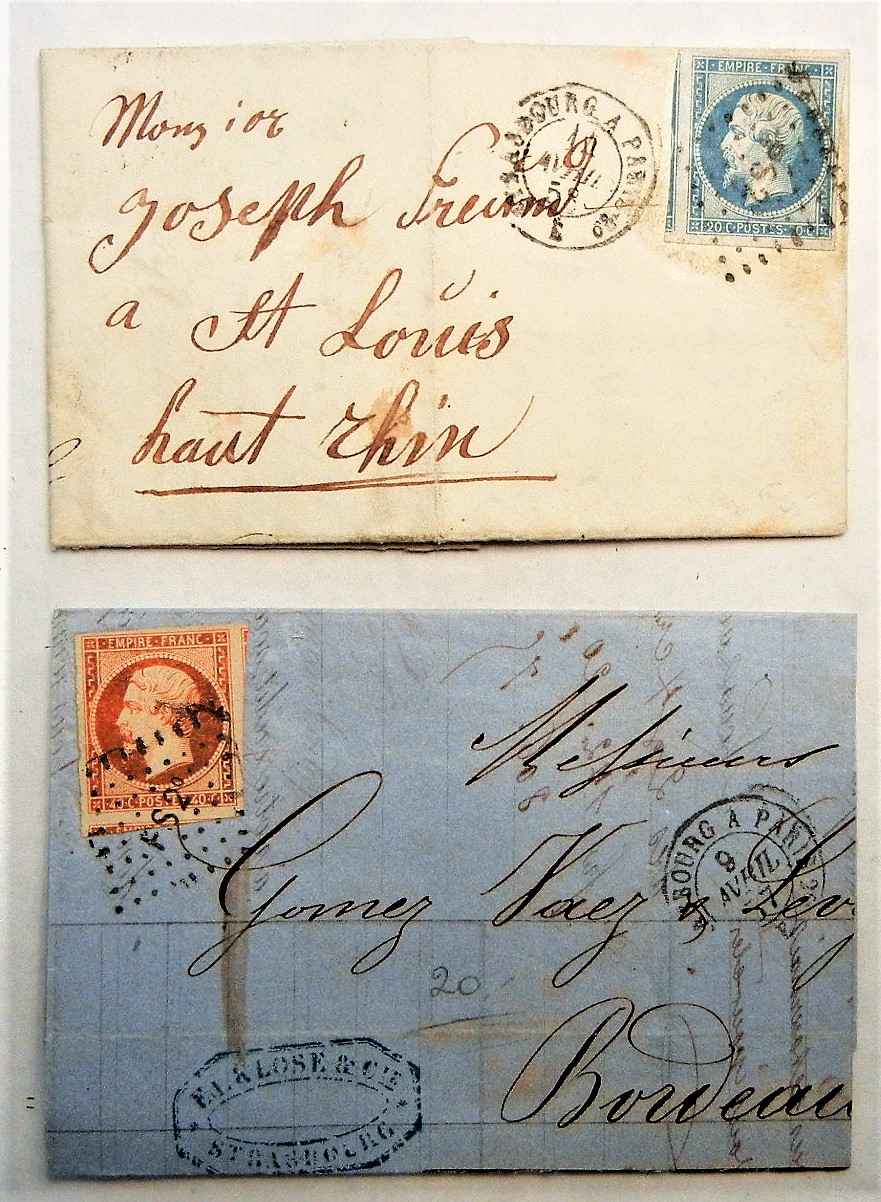 Monsior
Joseph
a St Louis
haut Rhin
STRASBOURG A PARIS
EMPIRE FRANC
20 C POSTES 20 C
EMPIRE-FRANC
40 C POSTES 40 C
Messieurs
Gomez Vaez & Levy
Bordeau
BOURG A PARIS
9
AVRIL
20
KLOSE & CIE
STRASBOURG